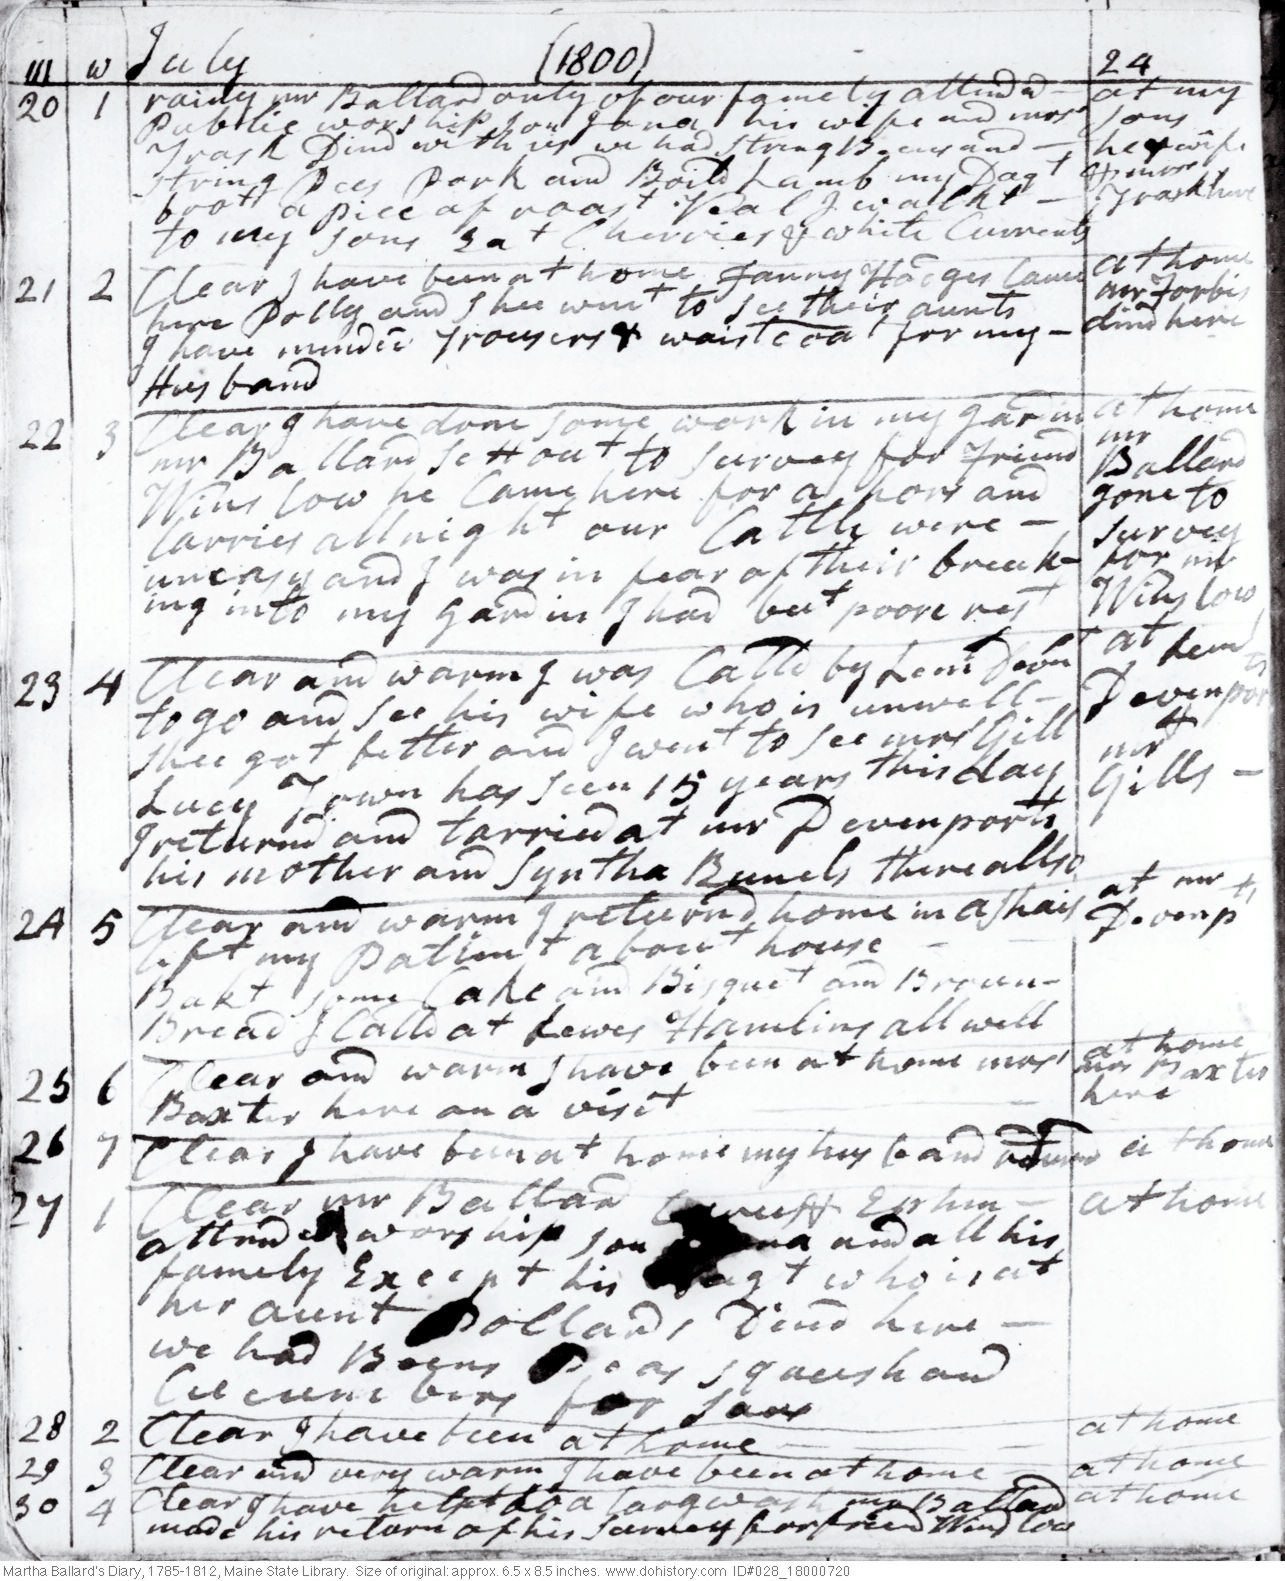 m w July (1800) 24
20 1 rainy mr Ballard only of our famely attend
Public worship son Jona his wife and mrs
Trask Dind with us we had string Beens and
string Pees Pork and Boild Lamb my Dagt
brot a Piece of roast Veal I walkt
to my sons Eat Cherries & white Currents
at my
sons
he & wife
& mrs
Trask here
21 2 Clear I have been at home Fanny Hodges Came
here Polly and shee went to see their aunts
I have mended Trousers & waistcoat for my
Husband
at home
mr Forbis
dind here
22 3 Clear I have done some work in my gardin
mr Ballard sett out to survey for Friend
Winslow he Came here for a hors and
tarries all night our Cattle were
uneasy and I was in fear of their break-
ing into my gardin I had but poore rest
at home
mr
Ballard
gone to
survey
for mr
Winslow
23 4 Clear and warm I was Calld by Lemu Devn
to go and see his wife who is unwell
shee got better and I went to see mrs Gill
Lucy Town has seen 15 years this day
I returnd and tarried at mr Devenports
his mother and Syntha Bunels there allso
at Lem
Devenports
&
mr
Gills
24 5 Clear and warm I returnd home in a shais
left my Patient about house
Bakt some Cake and Bisquet and Brown
Bread I Calld at Lewes Hamlins all well
at mr
Devenpts
25 6 Clear and warm I have been at home mrs
Baxter here on a visit
at home
mrs Baxter
here
26 7 Clear I have been at home my husband returnd at home
27 1 Clear mr Ballard Ephm
attended worship son Jona and all his
famely Except his Dagt who is at
her aunt Pollards Dind here
we had Beens Peas squash and
Cucumbers for Saus
at home
28 2 Clear I have been at home
at home
29 3 Clear and very warm I have been at home
at home
30 4 Clear I have helpt do a larg wash mr Ballard
made his return of his survey for friend Winslow
at home
Martha Ballard's Diary, 1785-1812, Maine State Library. Size of original: approx. 6.5 x 8.5 inches. www.dohistory.com ID#028_18000720